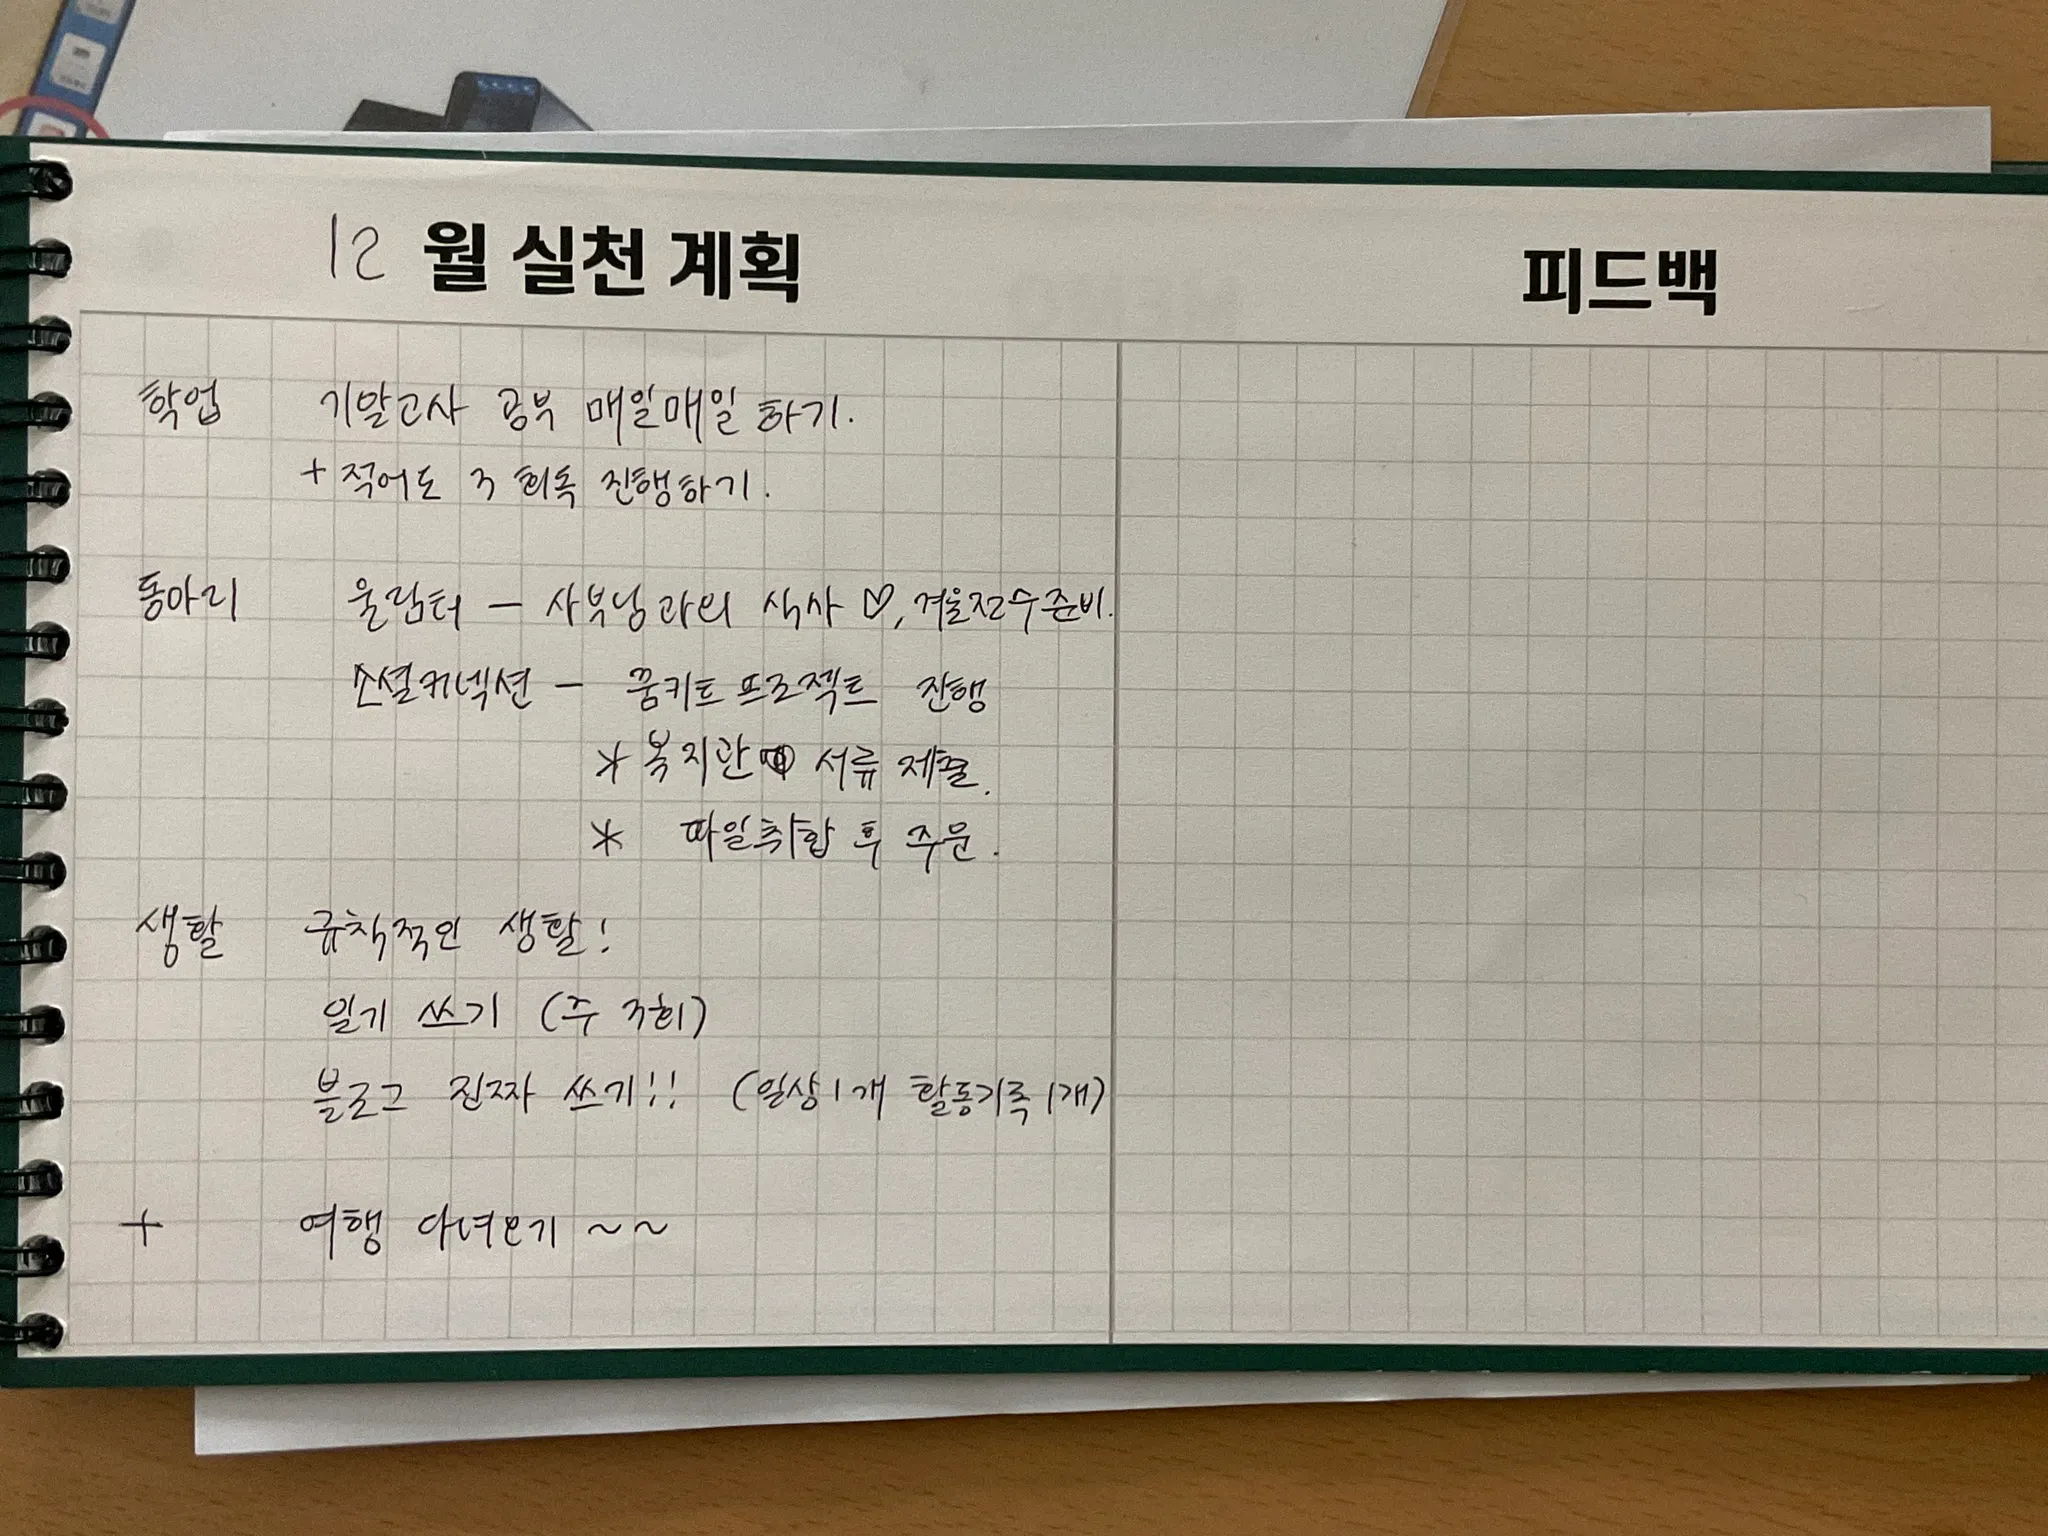 12월 실천 계획
피드백
학업 기말고사 공부 매일매일 하기.
+ 적어도 3회독 진행하기.
동아리 울림터 - 사부님과의 식사 ♡, 겨울전수준비.
소셜커넥션 - 꿈키트 프로젝트 진행
* 복지관 서류 제출.
* 파일취합 후 주문.
생활 규칙적인 생활!
일기 쓰기 (주 3회)
블로그 진짜 쓰기!! (일상1개 활동기록1개)
+ 여행 다녀오기 ~~